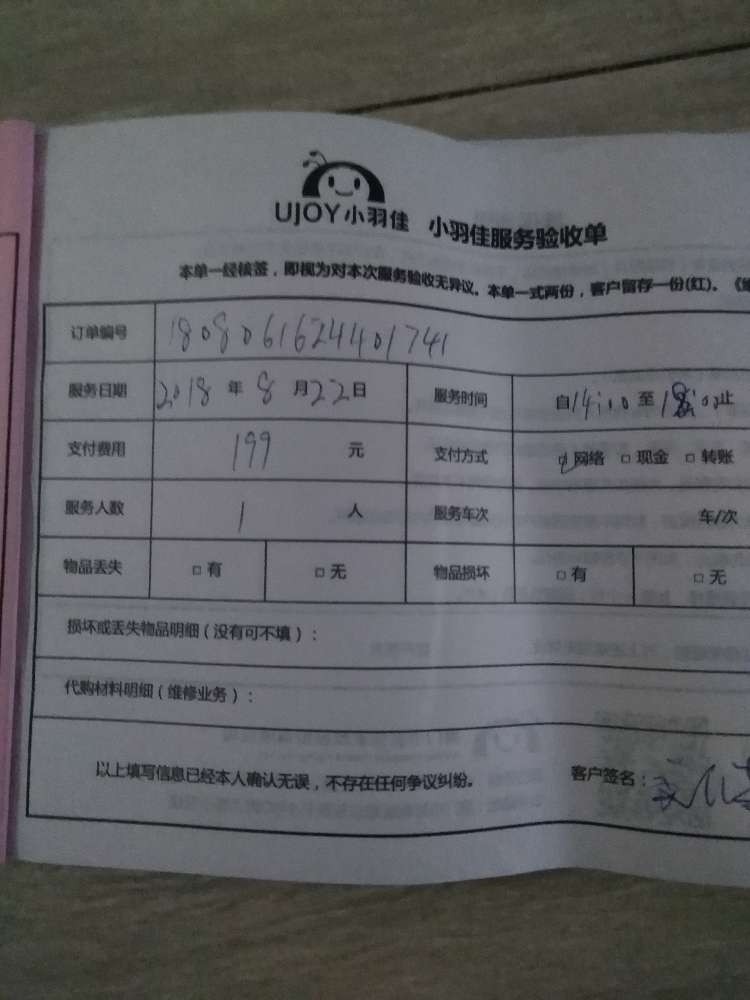 UJOY小羽佳 小羽佳服务验收单
本单一经核签，即视为对本次服务验收无异议。本单一式两份，客户留存一份(红)。
订单编号 1808061624401741
服务日期 2018 年 8 月 22 日 服务时间 自 14:00 至 18:00 止
支付费用 199 元 支付方式 ☑ 网络 □ 现金 □ 转账
服务人数 1 人 服务车次 车/次
物品丢失 □ 有 □ 无 物品损坏 □ 有 □ 无
损坏或丢失物品明细（没有可不填）：
代购材料明细（维修业务）：
以上填写信息已经本人确认无误，不存在任何争议纠纷。 客户签名：